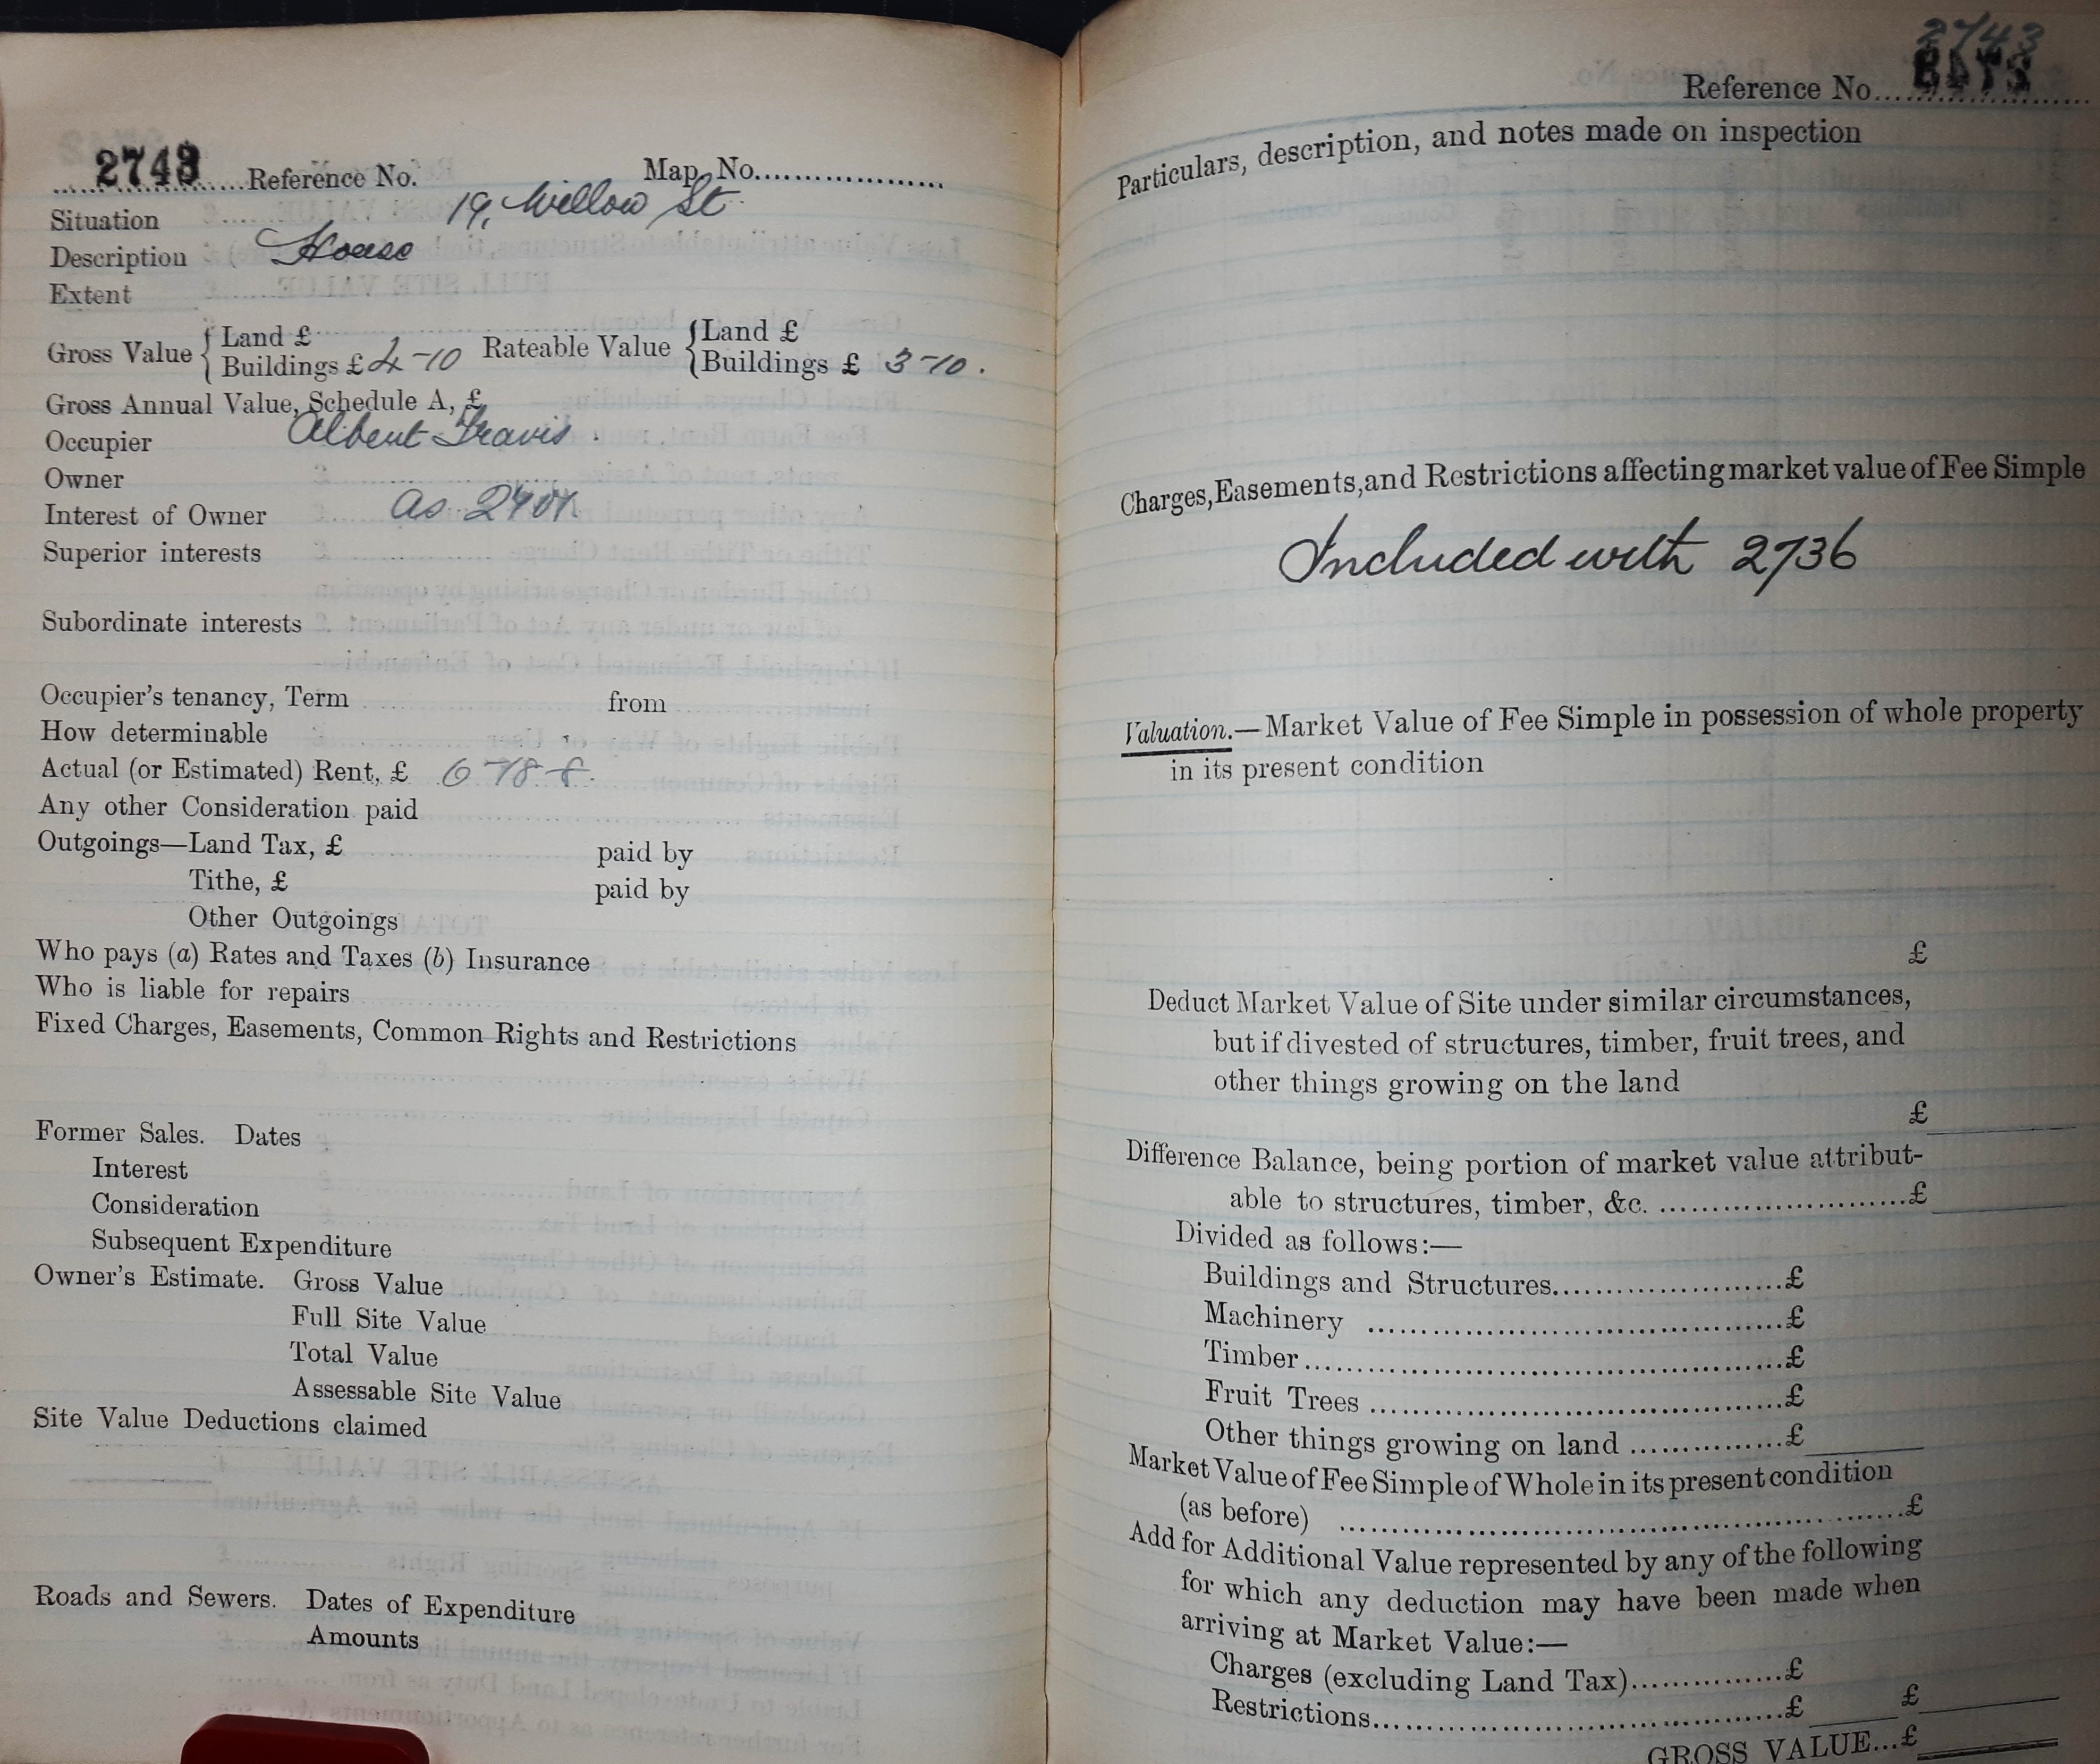 2743 Reference No. Map No.
Situation 19, Willow St.
Description House
Extent
Gross Value { Land £ Rateable Value { Land £
Buildings £ 4-10 Buildings £ 3-10.
Gross Annual Value, Schedule A, £
Occupier Albert Travis.
Owner
Interest of Owner as
Superior interests
Subordinate interests
Occupier's tenancy, Term from
How determinable
Actual (or Estimated) Rent, £
Any other Consideration paid
Outgoings—Land Tax, £ paid by
Tithe, £ paid by
Other Outgoings
Who pays (a) Rates and Taxes (b) Insurance
Who is liable for repairs
Fixed Charges, Easements, Common Rights and Restrictions
Former Sales. Dates
Interest
Consideration
Subsequent Expenditure
Owner's Estimate. Gross Value
Full Site Value
Total Value
Assessable Site Value
Site Value Deductions claimed
Roads and Sewers. Dates of Expenditure
Amounts
2743
Reference No.
Particulars, description, and notes made on inspection
Charges, Easements, and Restrictions affecting market value of Fee Simple
Included with 2736
Valuation.—Market Value of Fee Simple in possession of whole property
in its present condition
£
Deduct Market Value of Site under similar circumstances,
but if divested of structures, timber, fruit trees, and
other things growing on the land
£
Difference Balance, being portion of market value attribut-
able to structures, timber, &c. ........................£
Divided as follows:—
Buildings and Structures......................£
Machinery ......................£
Timber......................£
Fruit Trees ......................£
Other things growing on land ................£
Market Value of Fee Simple of Whole in its present condition
(as before) ......................£
Add for Additional Value represented by any of the following
for which any deduction may have been made when
arriving at Market Value:—
Charges (excluding Land Tax)................£
Restrictions......................£ £
GROSS VALUE...£